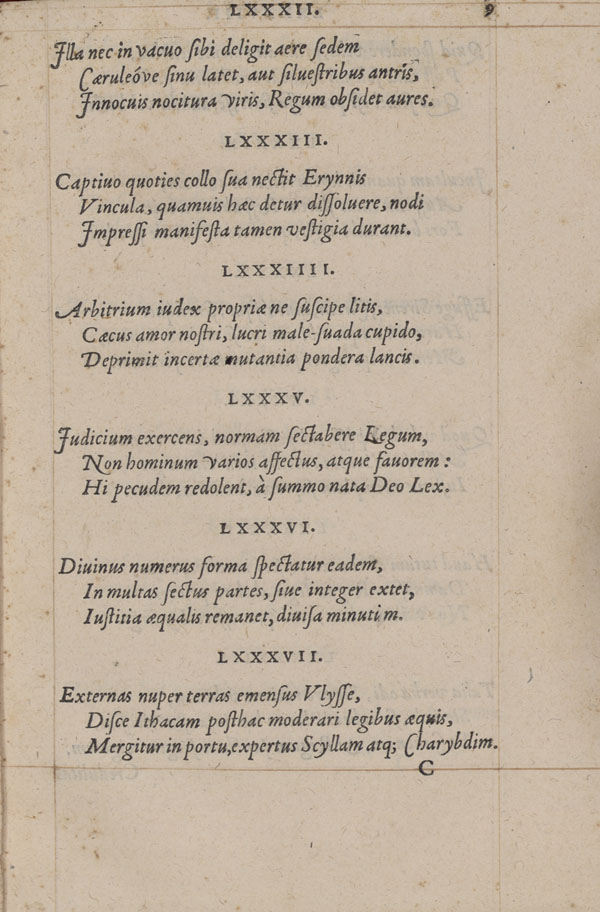 LXXXII. 9
Illa nec in vacuo sibi deligit aere sedem
Cæruleóve sinu latet, aut ſilueſtribus antris,
Innocuis nocitura viris, Regum obſidet aures.
LXXXIII.
Captiuo quoties collo ſua nectit Erynnis
Vincula, quamuis hæc detur diſſoluere, nodi
Impreſſi manifeſta tamen veſtigia durant.
LXXXIIII.
Arbitrium iudex propriæ ne ſuſcipe litis,
Cæcus amor noſtri, lucri male-ſuada cupido,
Deprimit incertæ mutantia pondera lancis.
LXXXV.
Iudicium exercens, normam ſectabere Legum,
Non hominum varios affectus, atque fauorem :
Hi pecudem redolent, à ſummo nata Deo Lex.
LXXXVI.
Diuinus numerus forma ſpectatur eadem,
In multas ſectus partes, ſiue integer extet,
Iuſtitia æqualis remanet, diuiſa minutim.
LXXXVII.
Externas nuper terras emenſus Vlyſſe,
Diſce Ithacam poſthac moderari legibus æquis,
Mergitur in portu, expertus Scyllam atq; Charybdim.
C